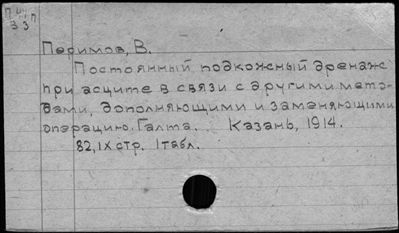 Перимов, В.
Постоянный подкожный дренаж
при асците в связи с другими мето-
дами, дополняющими и заменяющими
операцию Галта. Казань, 1914.
82, IX стр. 1 табл.